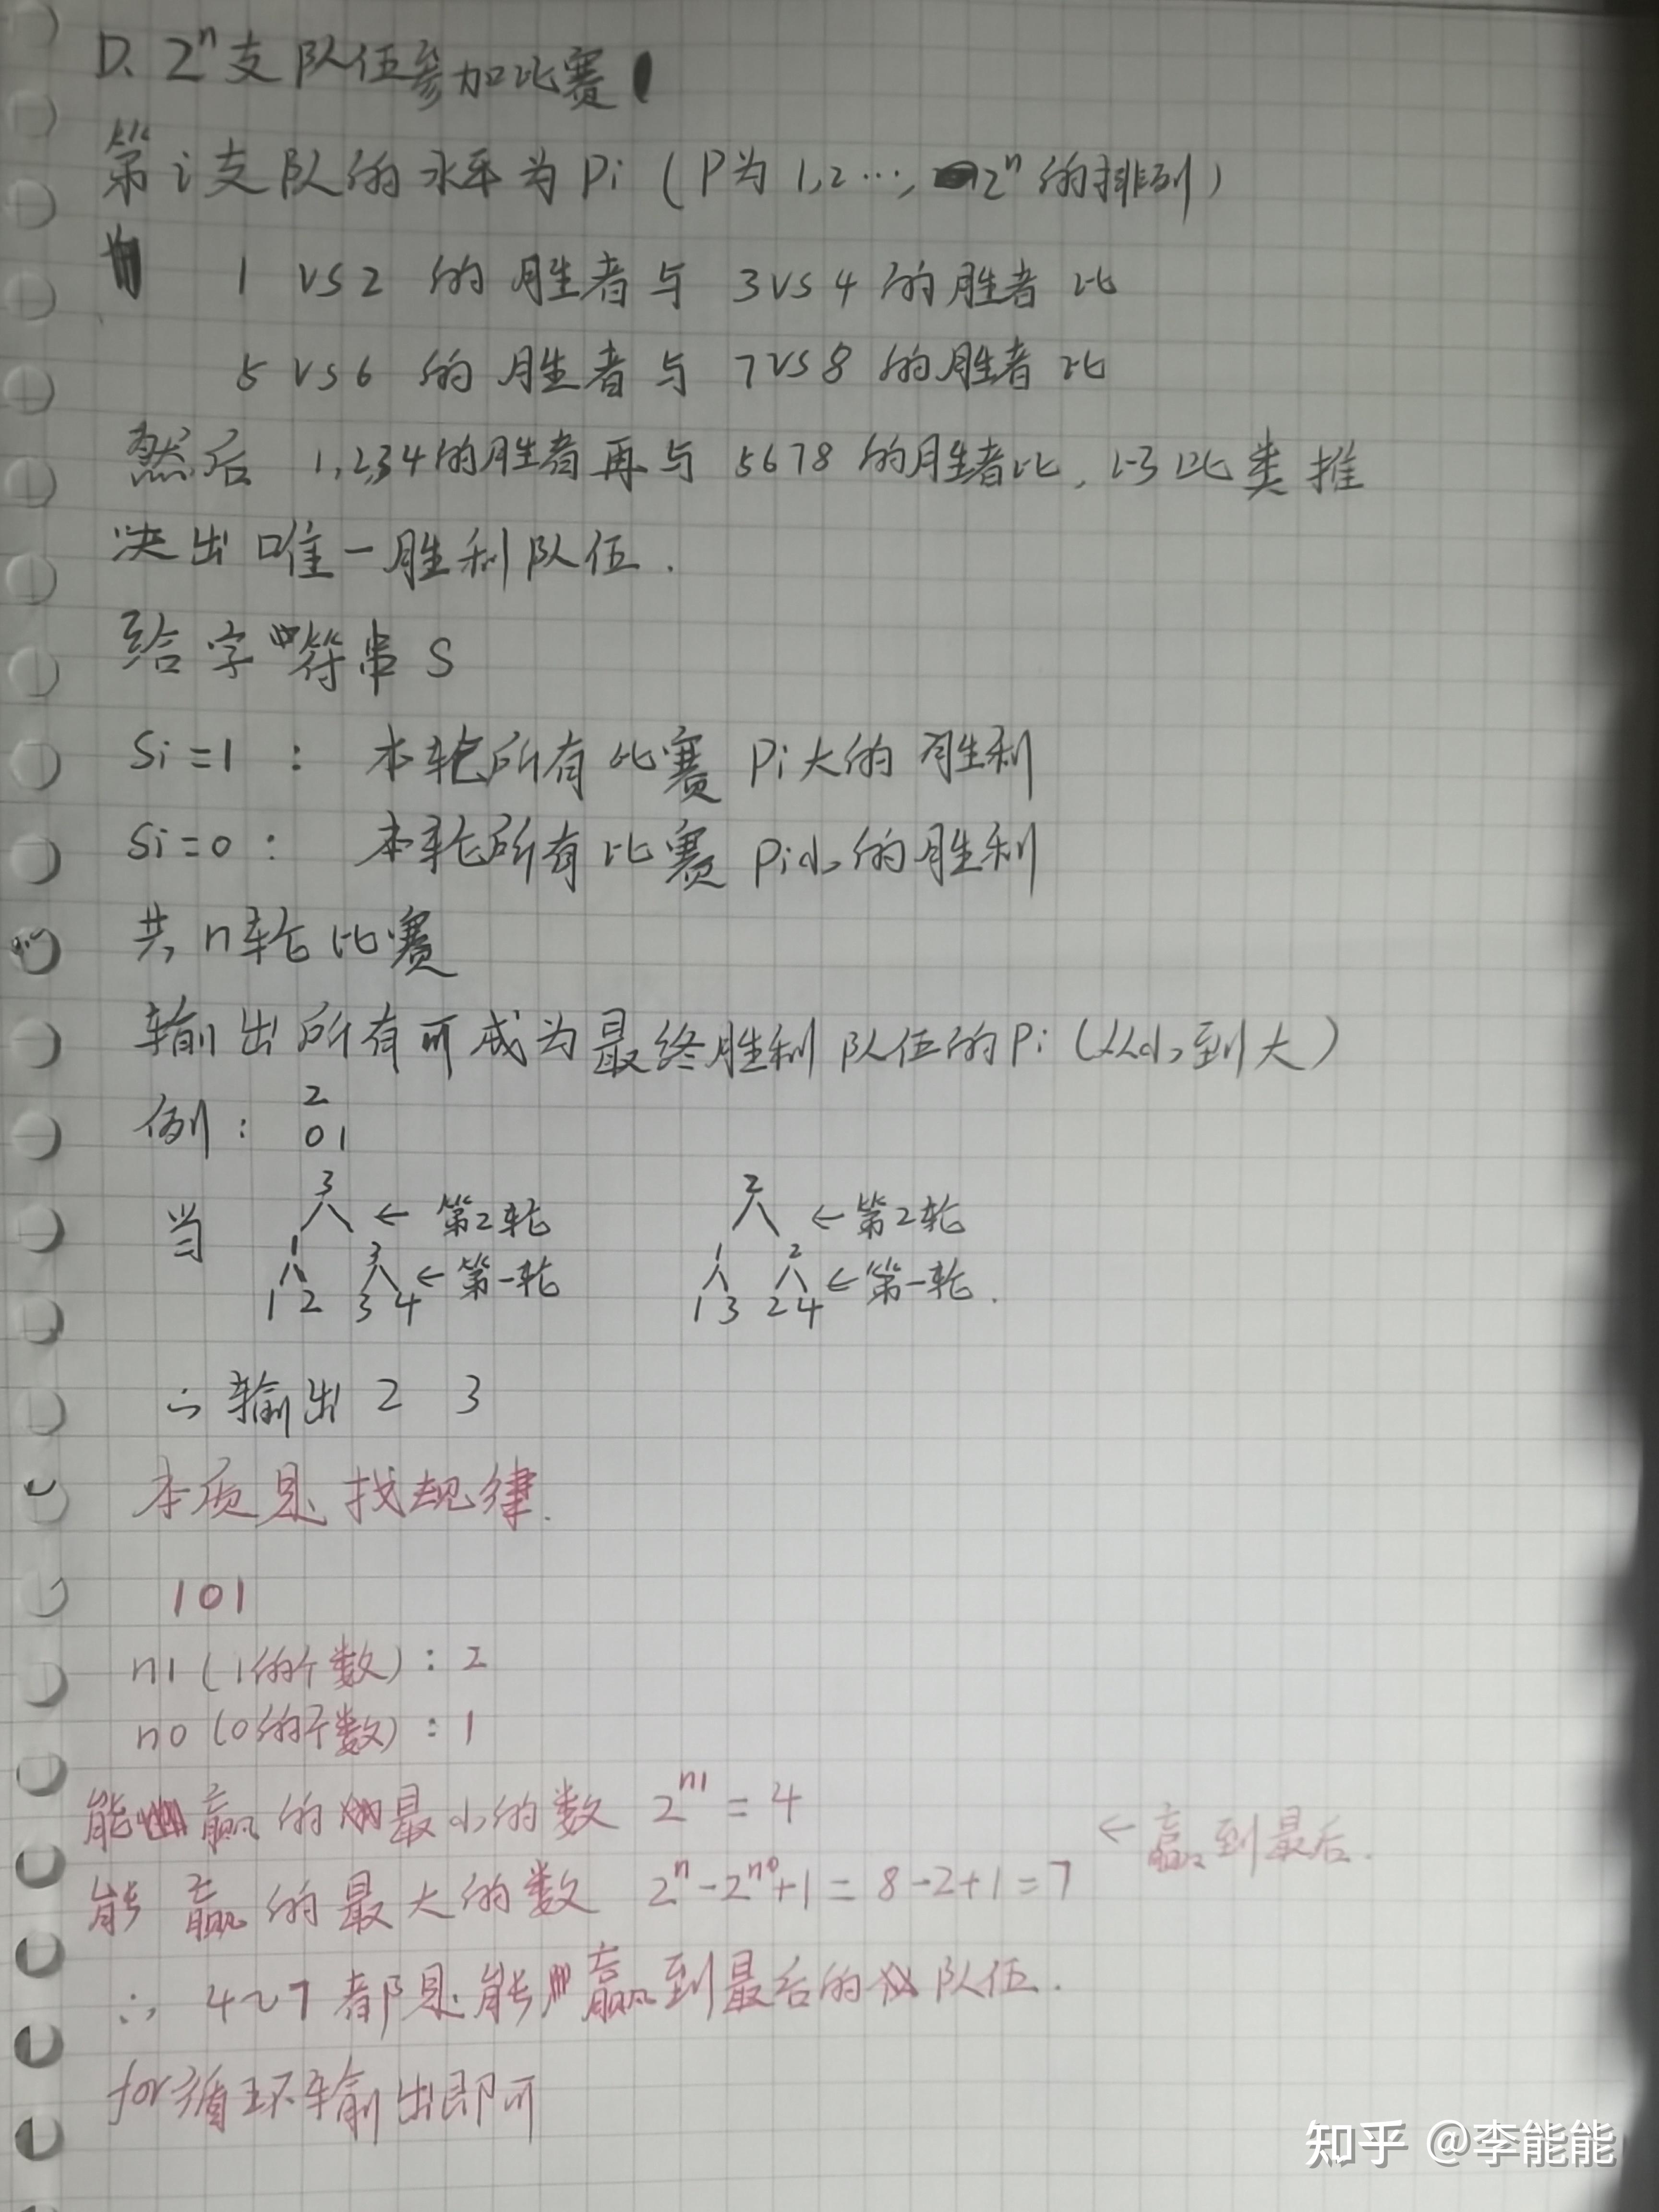 D. 2ⁿ支队伍参加比赛
第i支队的水平为Pi (P为1,2…, 2ⁿ的排列)
1 vs 2 的胜者与 3 vs 4 的胜者比
5 vs 6 的胜者与 7 vs 8 的胜者比
然后 1,2,3 4的胜者再与 5 6 7 8 的胜者比, 以此类推
决出唯一胜利队伍.
给字符串 S
Si=1 : 本轮所有比赛 Pi大的胜利
Si=0 : 本轮所有比赛 Pi小的胜利
共n轮比赛
输出所有可成为最终胜利队伍的Pi (从小到大)
例: 2
0 1
当 3 ← 第2轮 2 ← 第2轮
1 3 ← 第一轮 1 2 ← 第一轮.
1 2 3 4 1 3 2 4
∴ 输出 2 3
本质是找规律.
101
n1 (1的个数) : 2
n0 (0的个数) : 1
能赢的最小的数 2ⁿ¹ = 4
← 赢到最后.
能赢的最大的数 2ⁿ-2ⁿ⁰+1 = 8-2+1 = 7
∴ 4~7 都是能赢到最后的队伍.
for循环输出即可
知乎 @李能能